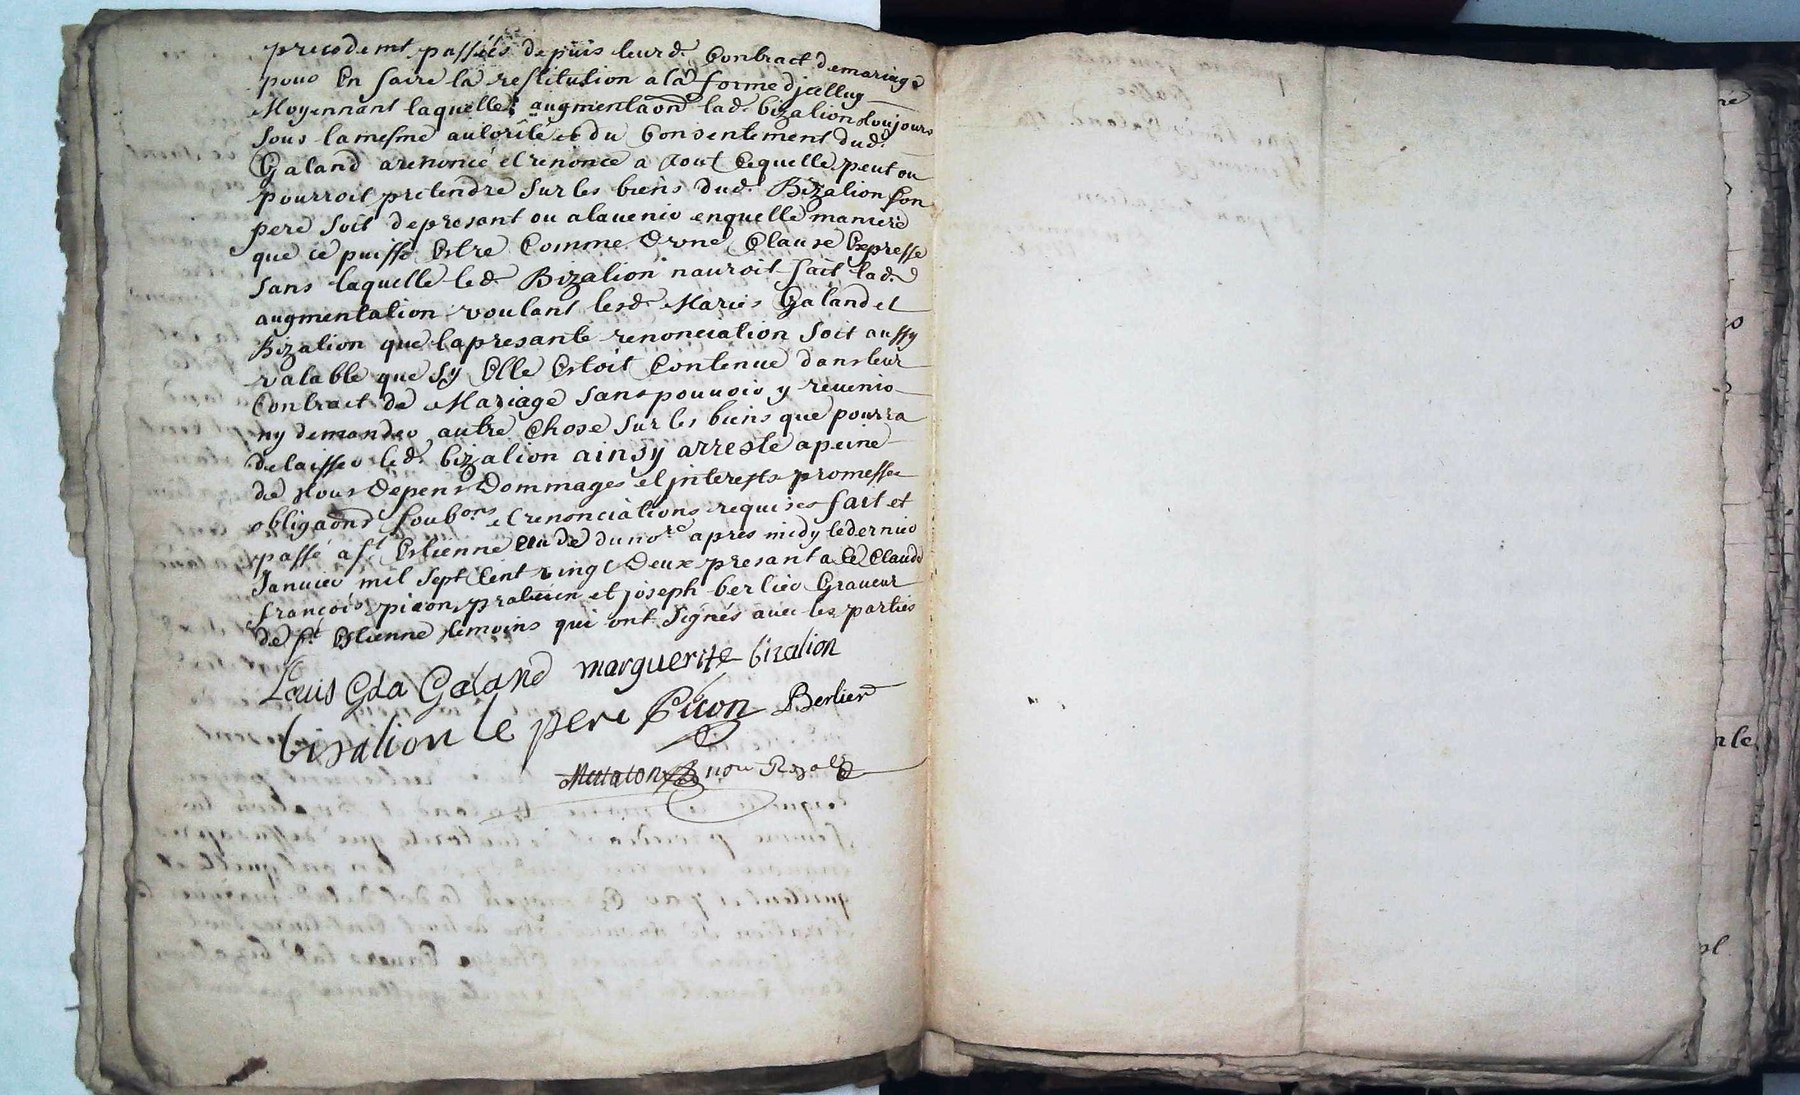 precedemt passées depuis leurd. Contract demariage
pour En faire la restitution a la forme djcelluy
Moyennant laquelle augmentaon lad. bizalion toujours
sous lamesme autorité et du Consentement dud.
Galand arenoncé et renonce a tout Cequelle peut ou
pourroit pretendre sur les biens dud. Bizalion son
pere soit depresant ou alavenir enquelle maniere
que ce puisse Estre Comme Dune Clause Expresse
sans laquelle led. Bizalion nauroit fait lad.
augmentation voulant lesd. Mariés Galand et
Bizalion que lapresante renonciation soit aussy
valable que sy Elle Estoit Contenue dans leur
Contract de Mariage sans pouvoir y revenir
ny demander autre Chose sur les biens que pourra
delaisser led. bizalion ainsy arresté apeine
de tous Depens Dommages et jnterests promesses
obligaons soubons et renonciations requises fait et
passé a st Estienne Etude du nore apres midy ledernier
Janvier mil sept Cent vingt Deux presant a Ce Claude
françois picon praticien et joseph berlier Graveur
de st Estienne temoins qui ont signés avec les parties
Louis Galand marguerite bizalion
bizalion le pere Picon Berlier
nore Royal